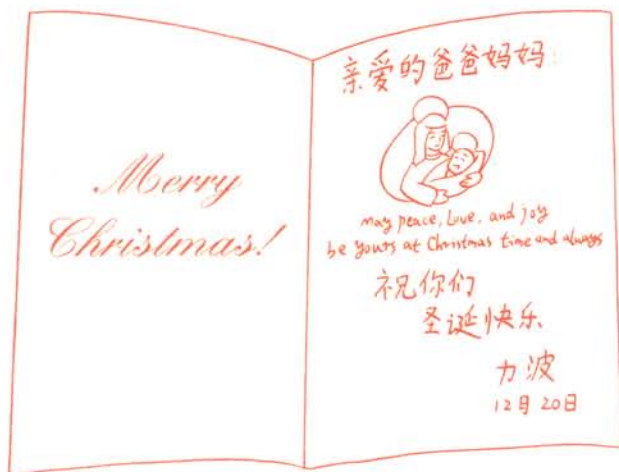 Merry
Christmas!
亲爱的爸爸妈妈:
may peace, Love, and joy
be yours at Christmas time and always
祝你们
圣诞快乐
力波
12月20日